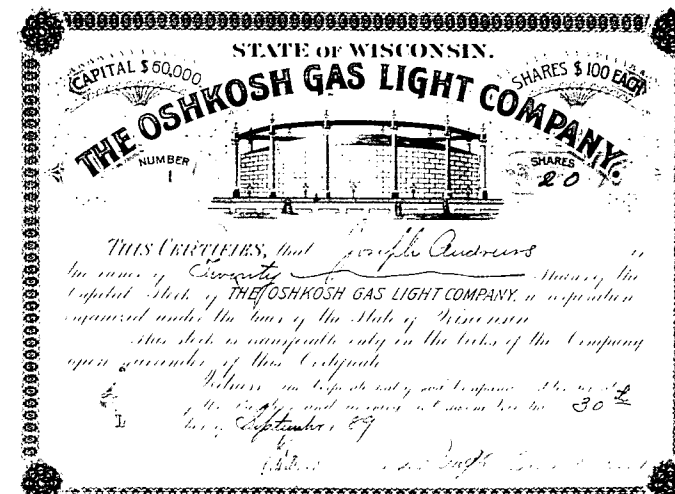 STATE OF WISCONSIN.
CAPITAL $60,000
SHARES $100 EACH
THE OSHKOSH GAS LIGHT COMPANY.
NUMBER
1
SHARES
20
THIS CERTIFIES, that Joseph Andrews is
the owner of Twenty Shares of the
Capital Stock of THE OSHKOSH GAS LIGHT COMPANY, a corporation
organized under the laws of the State of Wisconsin
This stock is transferable only on the books of the Company
upon surrender of this Certificate
30th
day of September 89